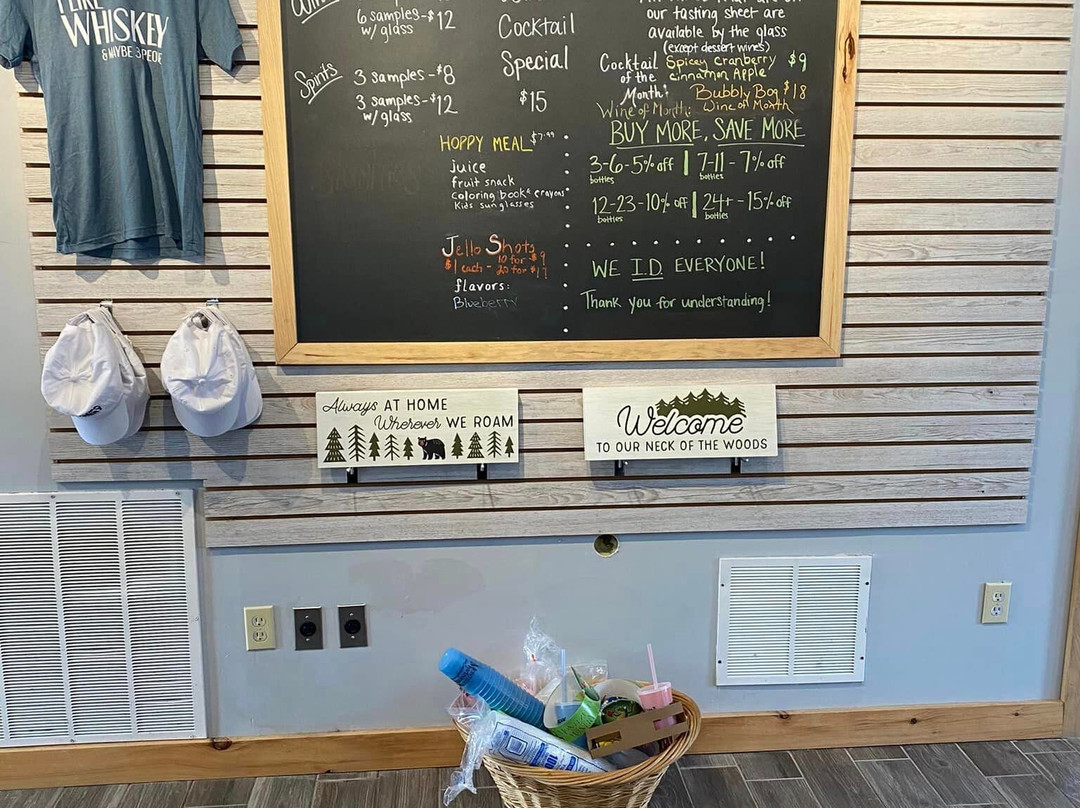 I LIKE
WHISKEY
& MAYBE 3 PEOP
6 samples - $12
w/ glass
Spirits
3 samples - $8
3 samples - $12
w/ glass
Cocktail
Special
$15
HOPPY MEAL $7.99
juice
fruit snack
coloring book & crayons
Kids sunglasses
Jello Shots
10 for $9
$1 each - 20 for $17
flavors:
Blueberry
our tasting sheet are
available by the glass
(except dessert wines)
Cocktail of the Month: Spicey cranberry cinnamon Apple $9
Wine of Month: Bubbly Bog $18
Wine of Month
BUY MORE, SAVE MORE
3-6-5% off | 7-11-7% off
bottles bottles
12-23-10% off | 24+ -15% off
bottles bottles
WE I.D. EVERYONE!
Thank you for understanding!
Always AT HOME
Wherever WE ROAM
Welcome
TO OUR NECK OF THE WOODS